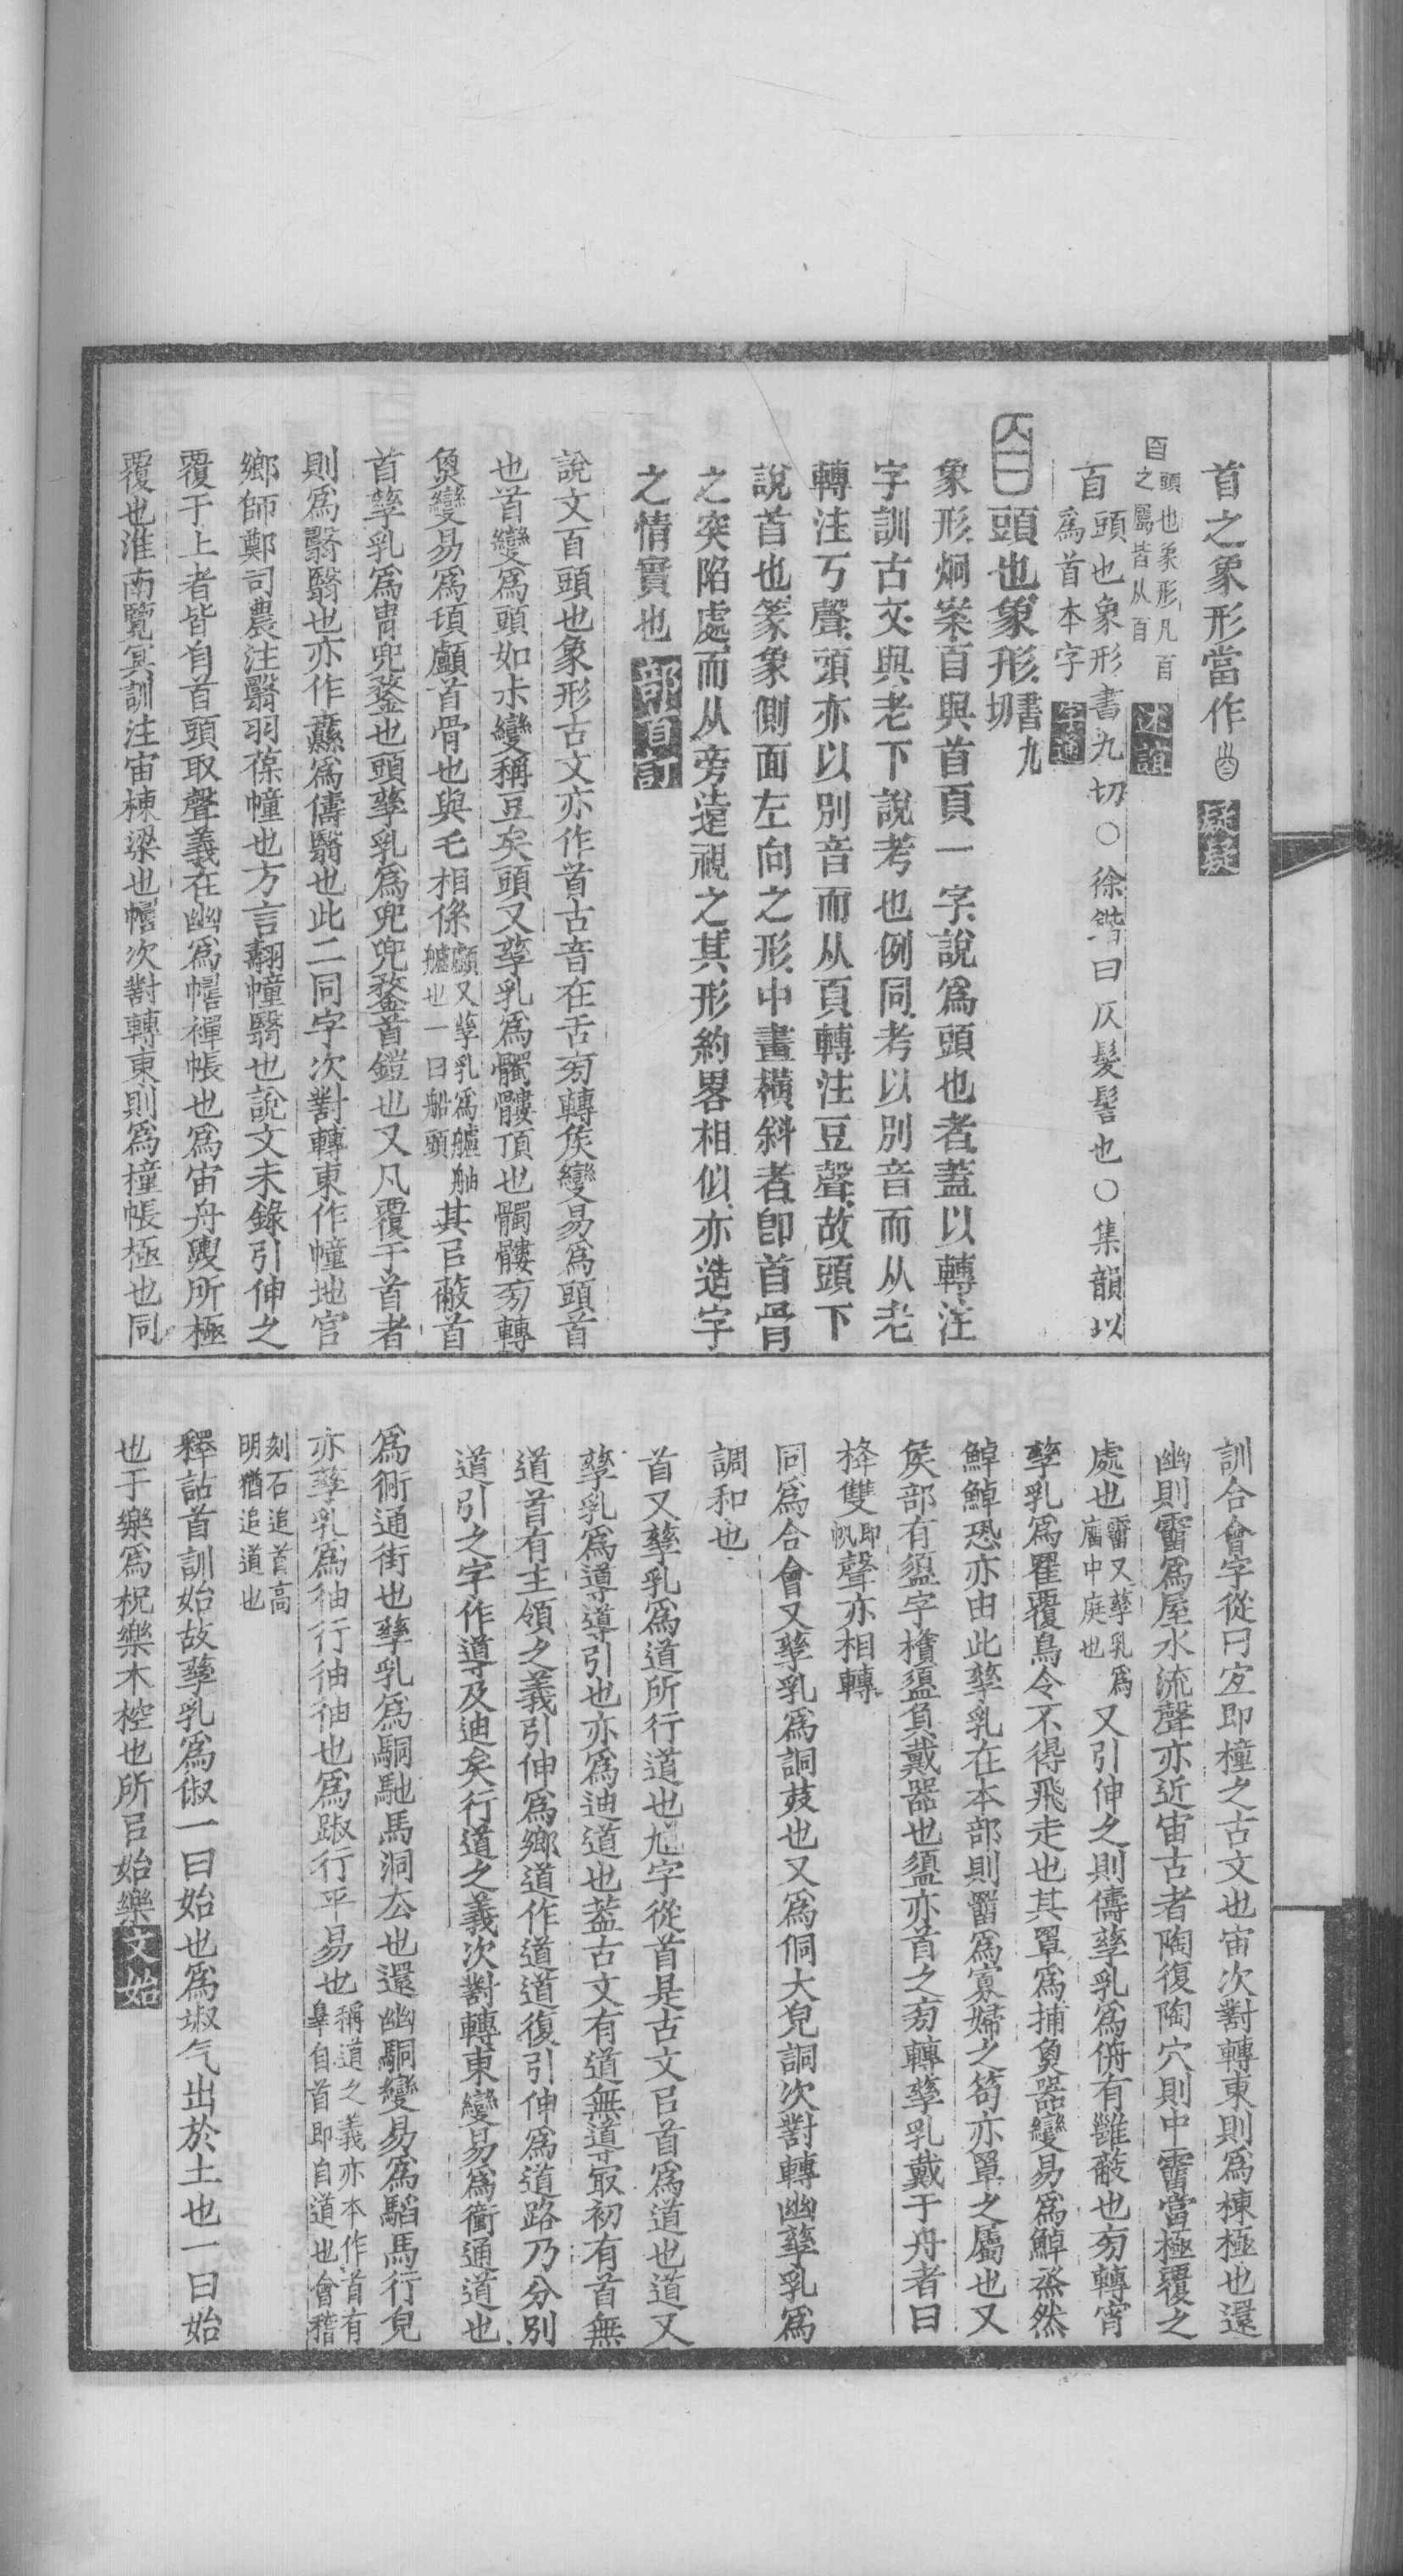 首之象形當作𦣻成蓉
𦣻頭也象形凡𦣻
之屬皆从𦣻述誼
𦣻頭也象形書九切○徐鍇曰仄髮髻也○集韻以
爲首本字字通
𦣻頭也象形書九切
象形炯案𦣻與首頁一字說爲頭也者蓋以轉注
字訓古文與老下說考也例同考以別音而从老
轉注丂聲頭亦以別音而从頁轉注豆聲故頭下
說首也篆象側面左向之形中畫橫斜者卽首骨
之突陷處而从旁遠視之其形約畧相似亦造字
之情實也部首訂
說文𦣻頭也象形古文亦作首古音在舌旁轉矦變易爲頭首
也首變爲頭如尗變稱豆矣頭又孳乳爲髑髏頂也髑髏旁轉
魚變易爲䪴顱首骨也與毛相係顱又孳乳爲艫舳
艫也一曰船頭其㠯蔽首
首孳乳爲冑兜鍪也頭孳乳爲兜兜鍪首鎧也又凡覆于首者
則爲翳翳也亦作纛爲儔翳也此二同字次對轉東作幢地官
鄉師鄭司農注翳羽葆幢也方言翿幢翳也說文未錄引伸之
覆于上者皆自首頭取聲義在幽爲幬襌帳也爲宙舟輿所極
覆也淮南覽冥訓注宙棟梁也幬次對轉東則爲橦帳極也同
訓合會字從冃㝉卽橦之古文也宙次對轉東則爲棟極也還
幽則霤爲屋水流聲亦近宙古者陶復陶穴則中霤當極覆之
處也霤又孳乳爲
廇中庭也又引伸之則儔孳乳爲侜有雝蔽也旁轉宵
孳乳爲罩覆鳥令不得飛走也其罩爲捕魚器變易爲䱠烝然
䱠䱠恐亦由此孳乳在本部則罶爲寡婦之笱亦罩之屬也又
矦部有𥂖字𣞶𥂖負戴器也𥂖亦首之旁轉孳乳戴于舟者曰
栙雙卽
帆聲亦相轉
同爲合會又孳乳爲詷䛐也又爲侗大皃詷次對轉幽孳乳爲
調和也
首又孳乳爲道所行道也馗字從首是古文㠯首爲道也道又
孳乳爲導導引也亦爲迪道也蓋古文有道無導㝡初有首無
道首有主領之義引伸爲鄉道作道道復引伸爲道路乃分別
道引之字作導及迪矣行道之義次對轉東變易爲衝通道也
爲衕通街也孳乳爲駧馳馬洞去也還幽駧變易爲駋馬行皃
亦孳乳爲䄂行䄂䄂也爲踧行平易也稱道之義亦本作首有
皋自首卽自道也會稽
刻石追首高
明猶追道也
釋詁首訓始故孳乳爲俶一曰始也爲埱气出於土也一曰始
也于樂爲柷樂木椌也所㠯始樂文始